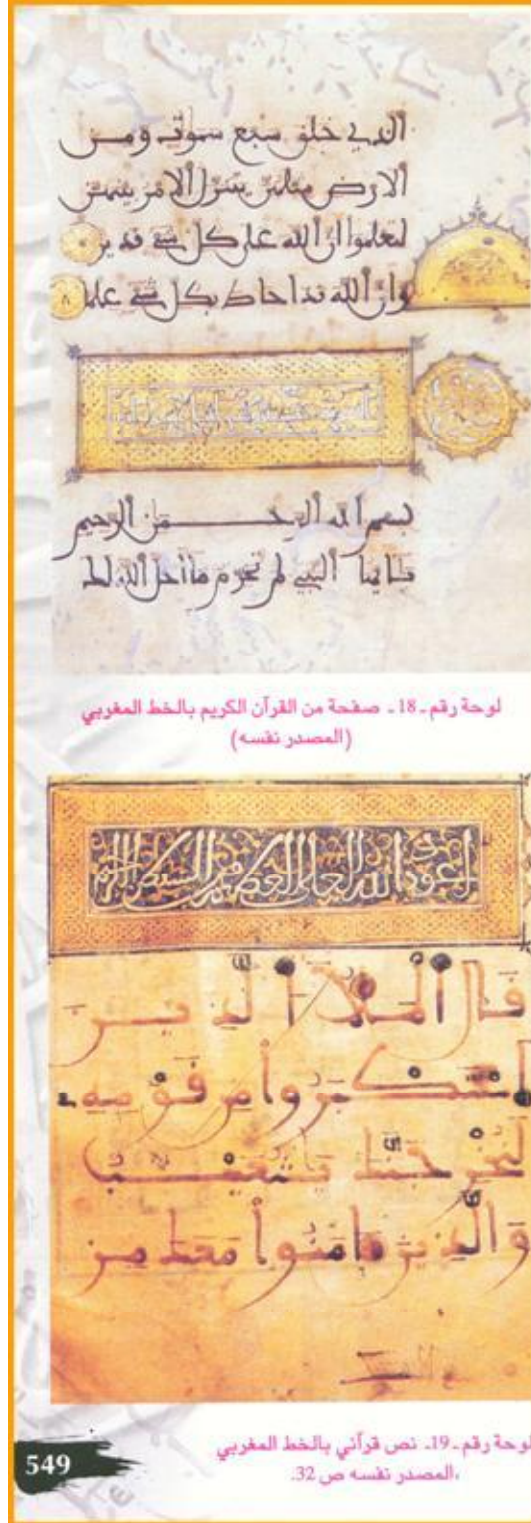 الذي خلق سبع سموت ومن
الارض مثلهن يتنزل الامر بينهن
لتعلموا ان الله على كل شي قدير
وان الله قد احاط بكل شي علما
بسم الله الرحمن الرحيم
يايها النبي لم تحرم ما احل الله لك
لوحة رقم ـ18 ـ صفحة من القرآن الكريم بالخط المغربي
(المصدر نفسه)
اعوذ بالله العلي العظيم من الشيطن الرجيم
قَال اَلْمَلَأُ اَلذِينَ
اَسْتَكْبَرُواْ مِن قَوْمِهِ
لَنُخْرِجَنَّكَ يَشُعَيْبُ
وَالذِينَ ءَامَنُواْ مَعَكَ مِن
لوحة رقم ـ19ـ نص قرآني بالخط المغربي
،المصدر نفسه ص 32.
549